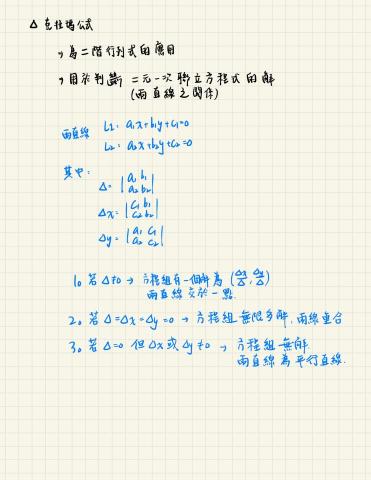 △ 克拉瑪公式
→ 為二階行列式的應用
→ 用於判斷 二元一次聯立方程式的解
(兩直線之關係)
兩直線 L1: a1x+b1y+c1=0
L2: a2x+b2y+c2=0
其中:
Δ= |a1 b1|
|a2 b2|
Δx= |c1 b1|
|c2 b2|
Δy= |a1 c1|
|a2 c2|
1. 若 Δ≠0 → 方程組有一個解為 (Δx/Δ, Δy/Δ)
兩直線交於一點.
2. 若 Δ=Δx=Δy=0 → 方程組無限多解, 兩線重合
3. 若 Δ=0 但 Δx 或 Δy≠0 → 方程組無解.
兩直線為平行直線.